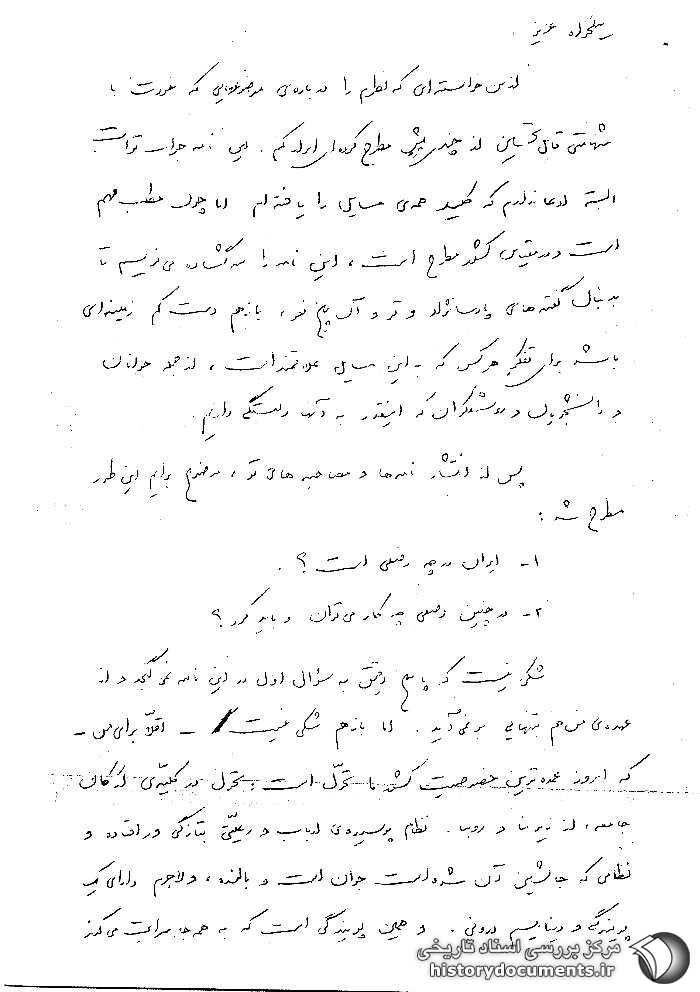 عزیز
از من خواسته‌ای که نظرم را درباره‌ی موضوعهایی که خودت با
شهامتی قابل تحسین از چندی پیش مطرح کرده‌ای ابراز کنم. این نامه جواب توست
البته ادعا ندارم که کلید همه‌ی مسایل را یافته‌ام اما چون مطلب مهم
است و در مقیاس کشور مطرح است، این نامه را سرگشاده می‌نویسم تا
بدنبال گفته‌های پارسانژاد و تو و آن پنج نفر، باز هم دست کم زمینه‌ای
باشد برای تفکر هر کس که به این مسایل علاقمند است، از جمله جوانان
و دانشجویان و روشنفکران که اینقدر به آنها دلبستگی داریم.
پس از انتشار نامه‌ها و مصاحبه‌های تو، موضوع برایم این طور
مطرح شد:
۱- ایران در چه وضعی است؟
۲- در چنین وضعی چه کار می‌توان و باید کرد؟
شکی نیست که پاسخ دقیق به سؤال اول در این نامه نمی‌گنجد و از
عهده‌ی من هم بتنهایی بر نمی‌آید. اما باز هم شکی نیست - اقلاً برای من -
که امروز عمده‌ترین خصوصیت کشور ما تحوّل است: تحول در کلیه‌ی ارکان
جامعه، از زیربنا و روبنا. نظام پوسیده‌ی ارباب و رعیتی بتازگی ور افتاده و
نظامی که جانشین آن شده است جوان است و بالنده، و لاجرم دارای یک
پویندگی و دینامیسم درونی. و همین پویندگی است که به همه جا سرایت می‌کند
مرکز بررسی اسناد تاریخی
historydocuments.ir